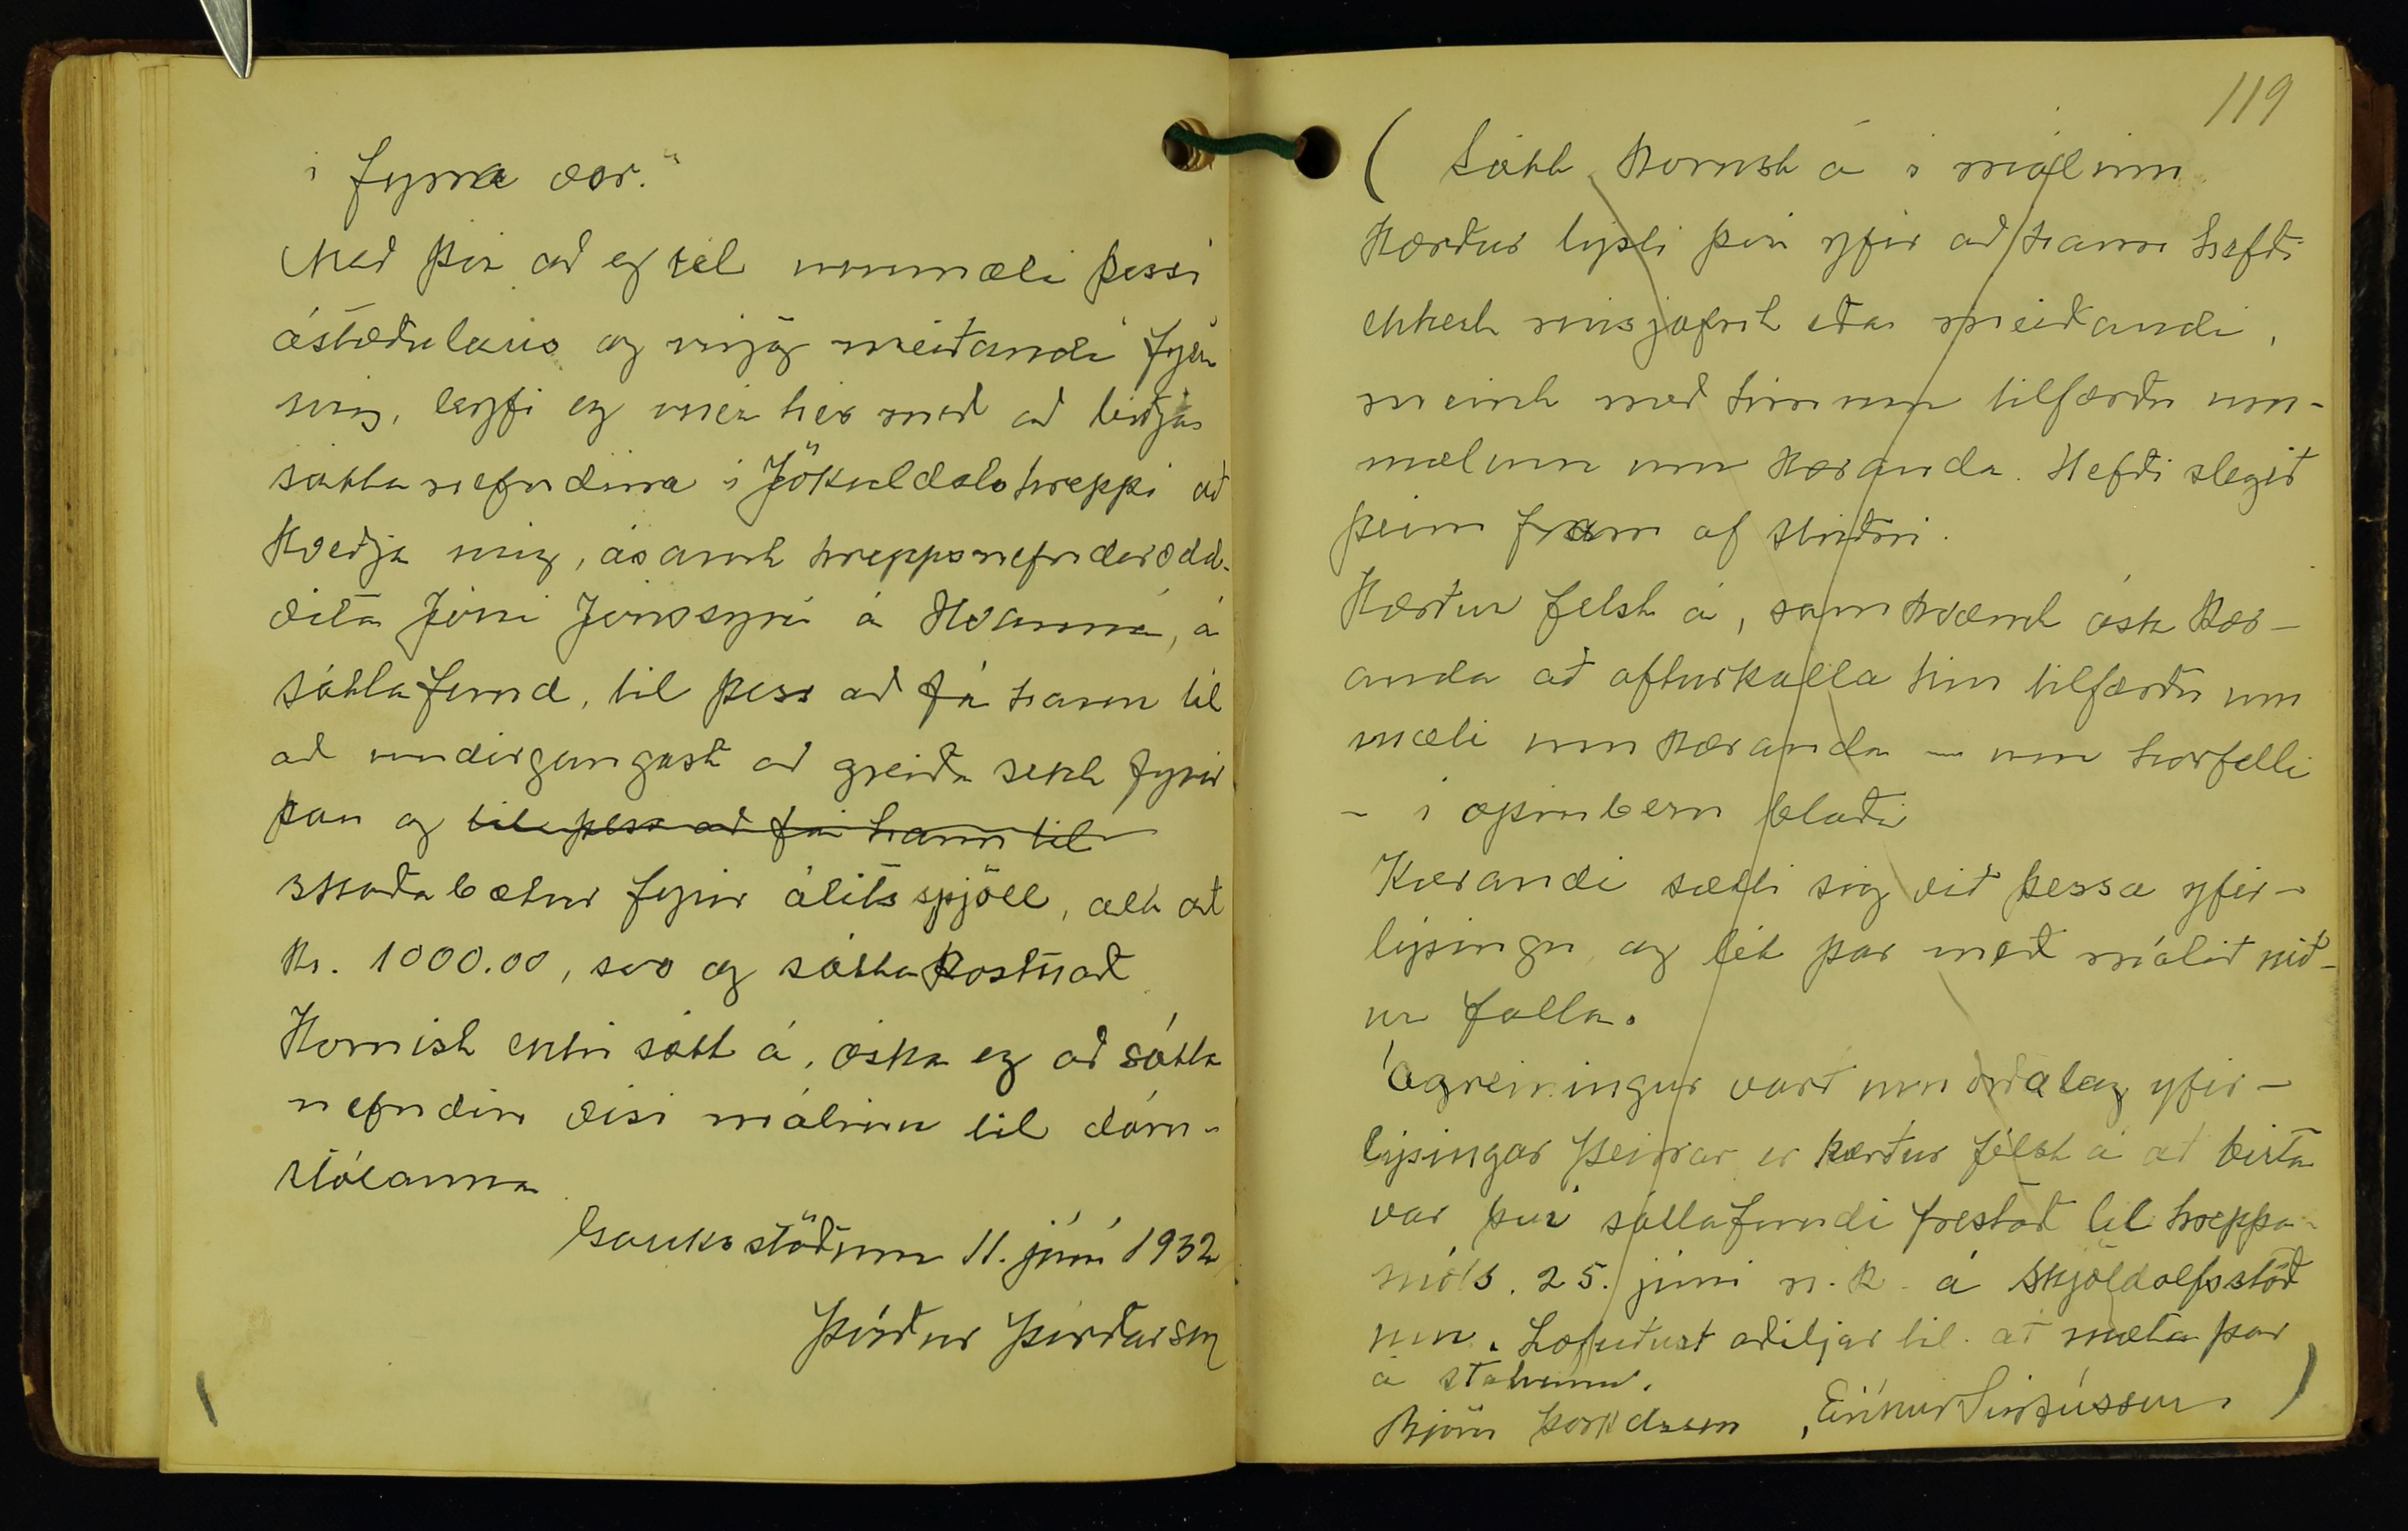 í fyrra vor."
Með því að eg tel ummæli þessi
ástæðulaus og mjög meiðandi fyrir
mig, leyfi eg mér hér með að biðja
sáttanefndina í Jökuldalshreppi að
kveðja mig, ásamt hreppsnefndarodd-
vita Jóni Jónssyni á Hvanná, á
sáttafund, til þess að fá hann til
að undirgangast að greiða sekt fyrir
þau og til þess að fá hann til
skaðabætur fyrir álitsspjöll, alt að
kr. 1000.00, svo og sáttakostnað
Komist ekki sátt á, óska eg að sátta
nefndin vísi málinu til dóm-
stólanna
Gauksstöðum 11. júní 1932
Þórður Þórðarson
119
( Sátt komst á í málinu
Kærður lýsti því yfir að hann hefði
ekkert misjafnt eða meiðandi,
meint með hinum tilfærðu um-
mælum um kæranda. Hefði slegið
þeim fram af stríðni.
Kærður felst á, samkvæmt ósk kær-
anda að afturkalla hin tilfærðu um
mæli um kæranda - um horfelli
- í opinberu blaði
Kærandi sætti sig við þessa yfir-
lýsingu, og lét þar með málið nið-
ur falla.
Ágreiningur varð um orðalag yfir-
lýsingar þeirrar er kærður félst á að birta
var því sáttafundi frestað til hreppa-
móts. 25. júní n.k. á Skjöldólfsstöð
um. Lofuðust aðiljar til að mæta þar
á staðnum.
Björn Þorkelsson, Eiríkur Sigfússon )